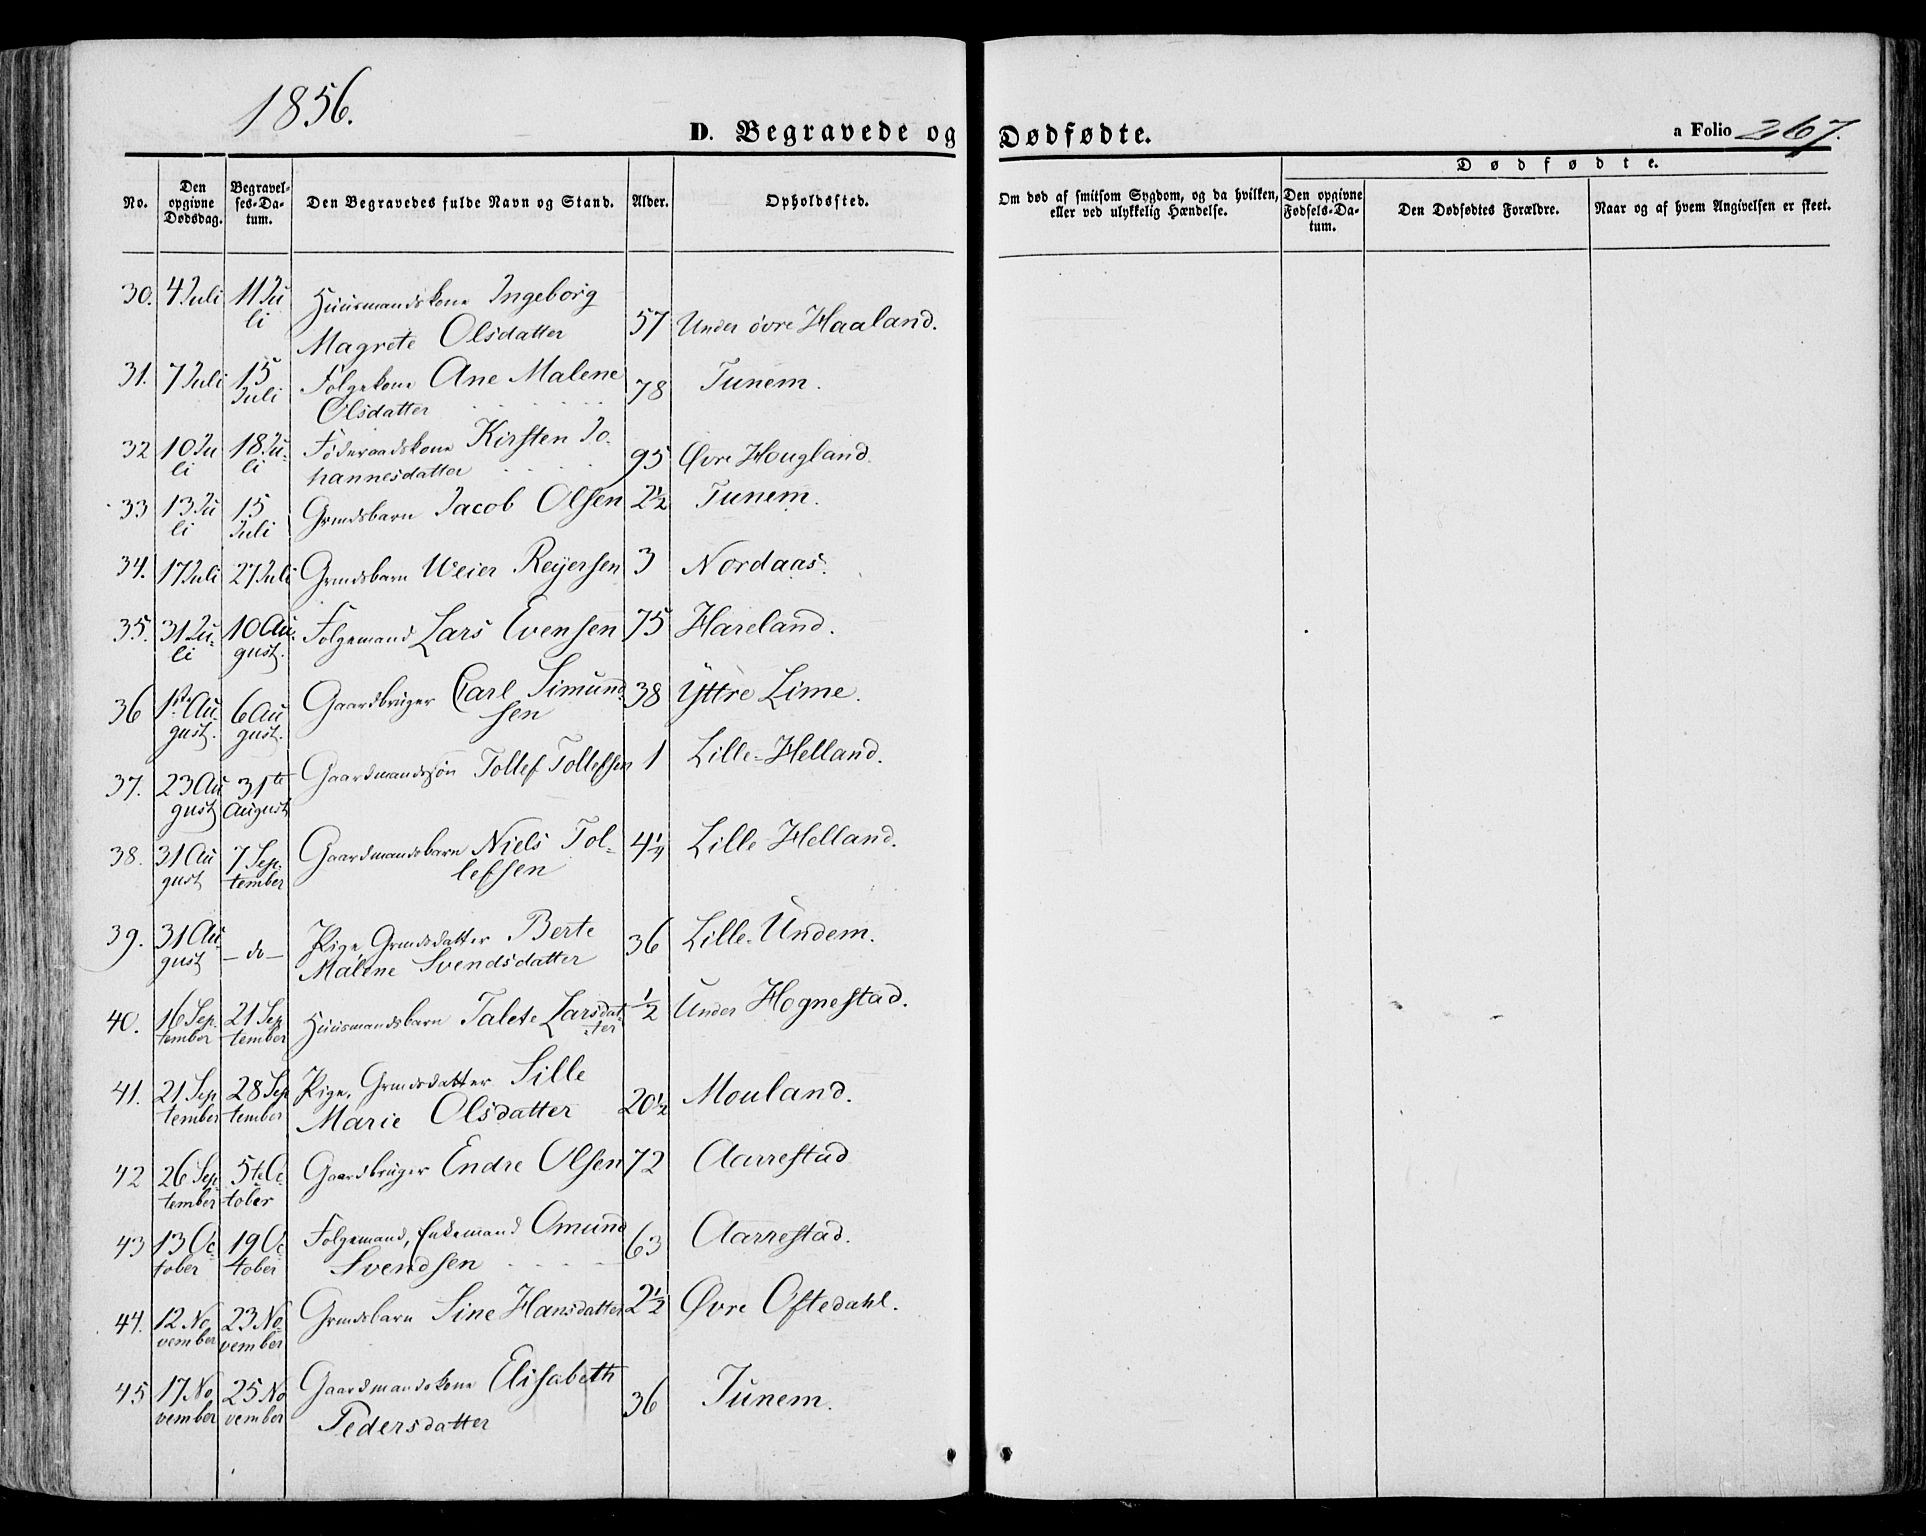 1856.
D. Begravede og Dødfødte.
a Folio 267.
No.
Den opgivne Dødsdag.
Begravelses-Datum.
Den Begravedes fulde Navn og Stand.
Alder.
Opholdssted.
Om død af smitsom Sygdom, og da hvilken, eller ved ulykkelig Hændelse.
Dødfødte.
Den opgivne Fødsels-Datum.
Den Dødfødtes Forældre.
Naar og af hvem Angivelsen er skeet.
30. 4 Juli 11 Juli Huusmandskone Ingeborg
Magrete Olsdatter 57 Under övre Haaland.
31. 7 Juli 15 Juli Folgekone Ane Malene
Olsdatter 78 Tunem.
32 10 Juli 18 Juli Föderaadskone Kirsten Jo-
hannesdatter 95 Øvre Hougland.
33 13 Juli 15 Juli Grmdsbarn Jacob Olsen 2½ Tunem.
34. 17 Juli 27 Juli Grmdsbarn Weier Reijersen 3 Nordaas.
35. 31 Juli 10 August. Folgemand Lars Evensen 75 Hareland.
36 1ste August. 6 August. Gaardbruger Carl Simund-
sen 38 Yttre Lime.
37. 23 August 31te August Gaardmandssön Tollef Tollefsen 1 Lille-Helland.
38. 31 August 7 September Gaardmandsbarn Niels Tol-
lefsen 4¼ Lille Helland.
39. 31 August – do – Pige, Grmdsdatter Berte
Malene Svendsdatter 36 Lille-Undem.
40. 16 September 21 September Huusmandsbarn Talete Larsdat-
ter ½ Under Hognestad.
41. 21 September 28 September Pige, Grmdsdatter Sille
Marie Olsdatter 20½ Mouland.
42 26 September 5te October Gaardbruger Endre Olsen 72 Aarrestad
43 13 October 19 October Folgemand, Enkemand Omund
Svendsen 63 Aarrestad.
44. 12 November 23 November Grmdsbarn Sine Hansdatter 2½ Øvre Oftedahl.
45 17 November 25 November Gaardmandskone Elisabeth
Pedersdatter 36 Tunem.